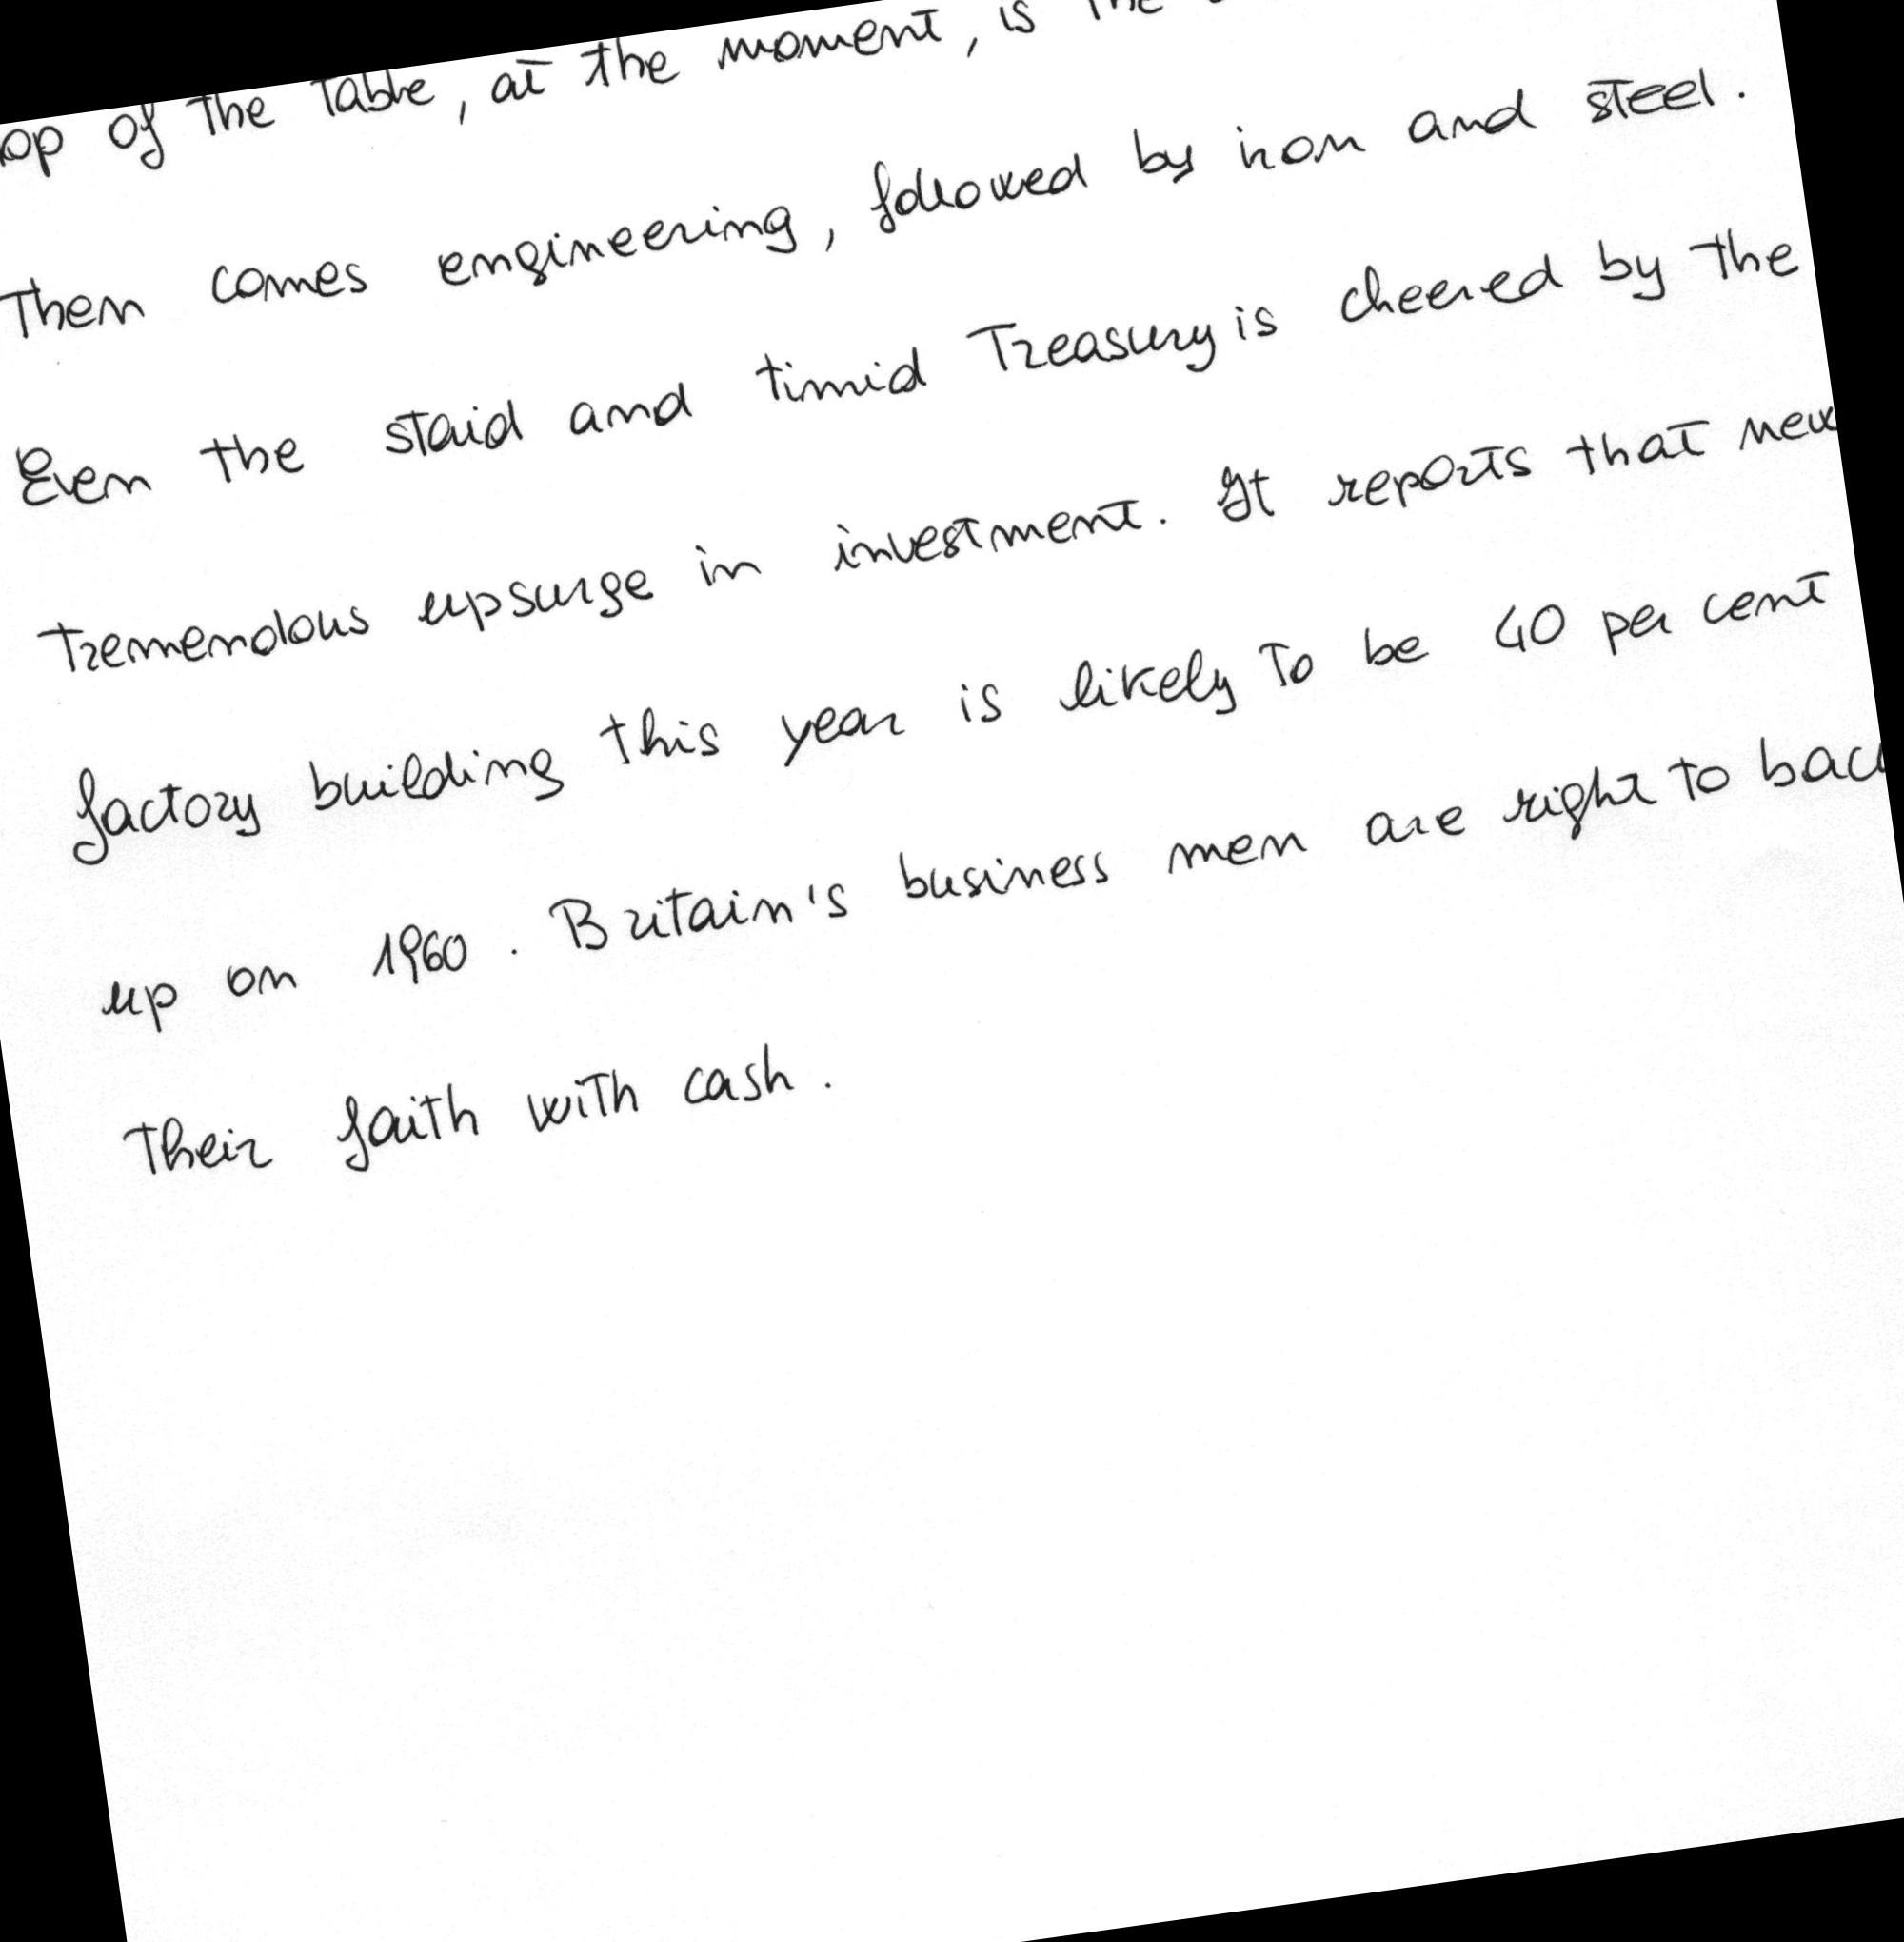 of the table, at the moment, is the
Then comes engineering, followed by iron and steel.
Even the staid and timid Treasury is cheered by the
tremendous upsurge in investment. It reports that new
factory building this year is likely to be 40 per cent
up on 1960. Britain's business men are right to
their faith with cash.